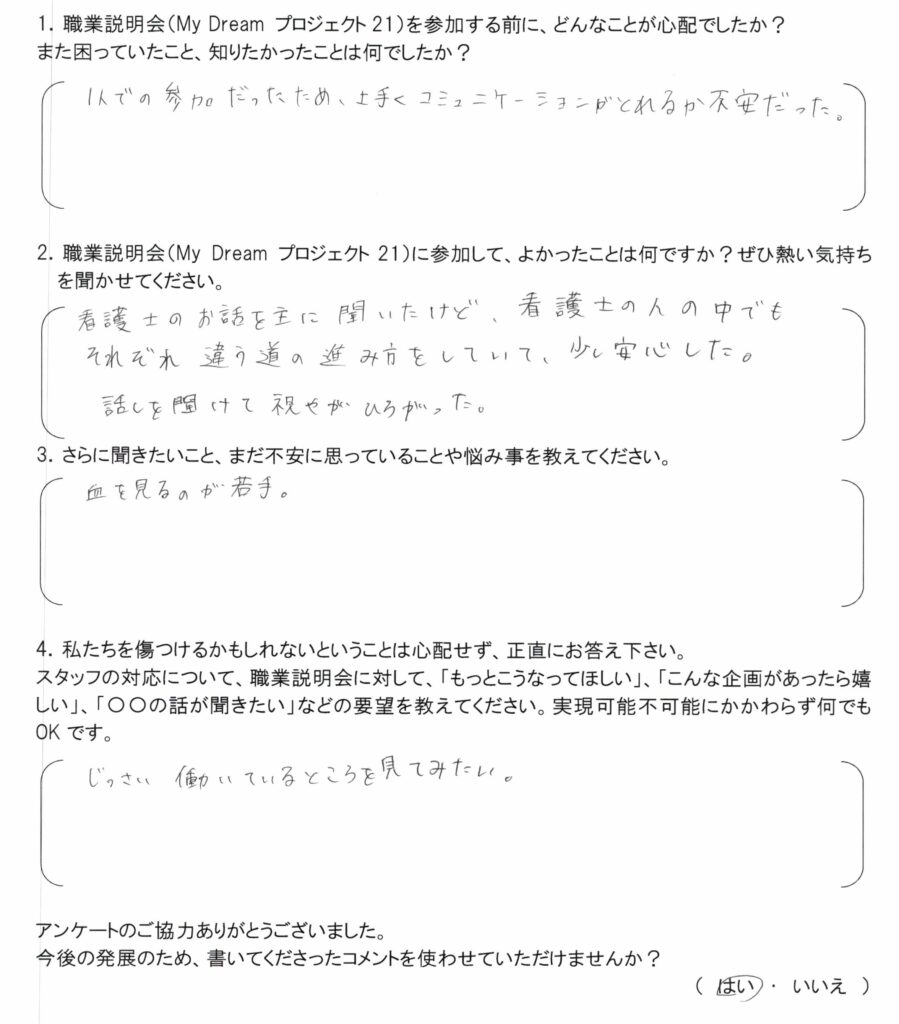 1. 職業説明会(My Dream プロジェクト 21)を参加する前に、どんなことが心配でしたか?
また困っていたこと、知りたかったことは何でしたか?
1人での参加だったため、上手くコミュニケーションがとれるか不安だった。
2. 職業説明会(My Dream プロジェクト 21)に参加して、よかったことは何ですか?ぜひ熱い気持ち
を聞かせてください。
看護士のお話を主に聞いたけど、看護士の人の中でも
それぞれ違う道の進み方をしていて、少し安心した。
話しを聞けて視やがひろがった。
3. さらに聞きたいこと、まだ不安に思っていることや悩み事を教えてください。
血を見るのが苦手。
4. 私たちを傷つけるかもしれないということは心配せず、正直にお答え下さい。
スタッフの対応について、職業説明会に対して、「もっとこうなってほしい」、「こんな企画があったら嬉
しい」、「〇〇の話が聞きたい」などの要望を教えてください。実現可能不可能にかかわらず何でも
OK です。
じっさい働いているところを見てみたい。
アンケートのご協力ありがとうございました。
今後の発展のため、書いてくださったコメントを使わせていただけませんか?
( はい ・ いいえ )